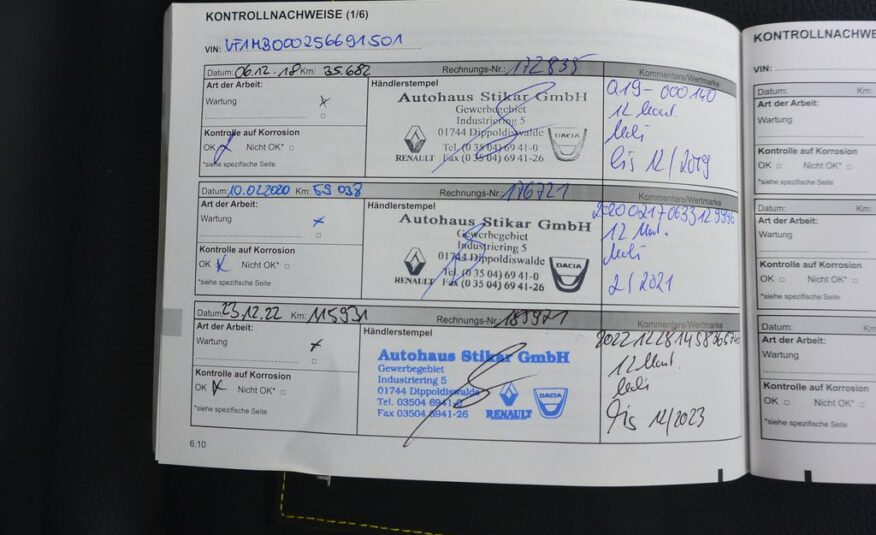 KONTROLLNACHWEISE (1/6)
VIN: VF1MB000256691501
Datum: 06.12.18 Km: 35.682 Rechnungs-Nr.: 172835 Kommentare/Wertmarke
Art der Arbeit:
Wartung x
Kontrolle auf Korrosion
OK Nicht OK*
*siehe spezifische Seite
Händlerstempel
Autohaus Stikar GmbH
Gewerbegebiet
Industriering 5
01744 Dippoldiswalde
Tel. (0 35 04) 69 41-0
Fax (0 35 04) 69 41-26
RENAULT
DACIA
Q19-000140
12 Mont.
bis 12/2019
Datum: 10.02.2020 Km: 59 038 Rechnungs-Nr.: 176721 Kommentare/Wertmarke
Art der Arbeit:
Wartung x
Kontrolle auf Korrosion
OK x Nicht OK*
*siehe spezifische Seite
Händlerstempel
Autohaus Stikar GmbH
Gewerbegebiet
Industriering 5
01744 Dippoldiswalde
Tel. (0 35 04) 69 41-0
Fax (0 35 04) 69 41-26
RENAULT
DACIA
12 Mont.
2/2021
Datum: 23.12.22 Km: 115931 Rechnungs-Nr. Kommentare/Wertmarke
Art der Arbeit:
Wartung x
Kontrolle auf Korrosion
OK x Nicht OK*
*siehe spezifische Seite
Händlerstempel
Autohaus Stikar GmbH
Gewerbegebiet
Industriering 5
01744 Dippoldiswalde
Tel. 03504 6941-0
Fax 03504 6941-26
RENAULT
DACIA
12 Mont.
bis 12/2023
6.10
KONTROLLNACHWE
VIN:
Datum: Km:
Art der Arbeit:
Wartung
Kontrolle auf Korrosion
OK Nicht OK*
*siehe spezifische Seite
Datum: Km:
Art der Arbeit:
Wartung
Kontrolle auf Korrosion
OK Nicht OK*
*siehe spezifische Seite
Datum: Km:
Art der Arbeit:
Wartung
Kontrolle auf Korrosion
OK Nicht OK*
*siehe spezifische Seite